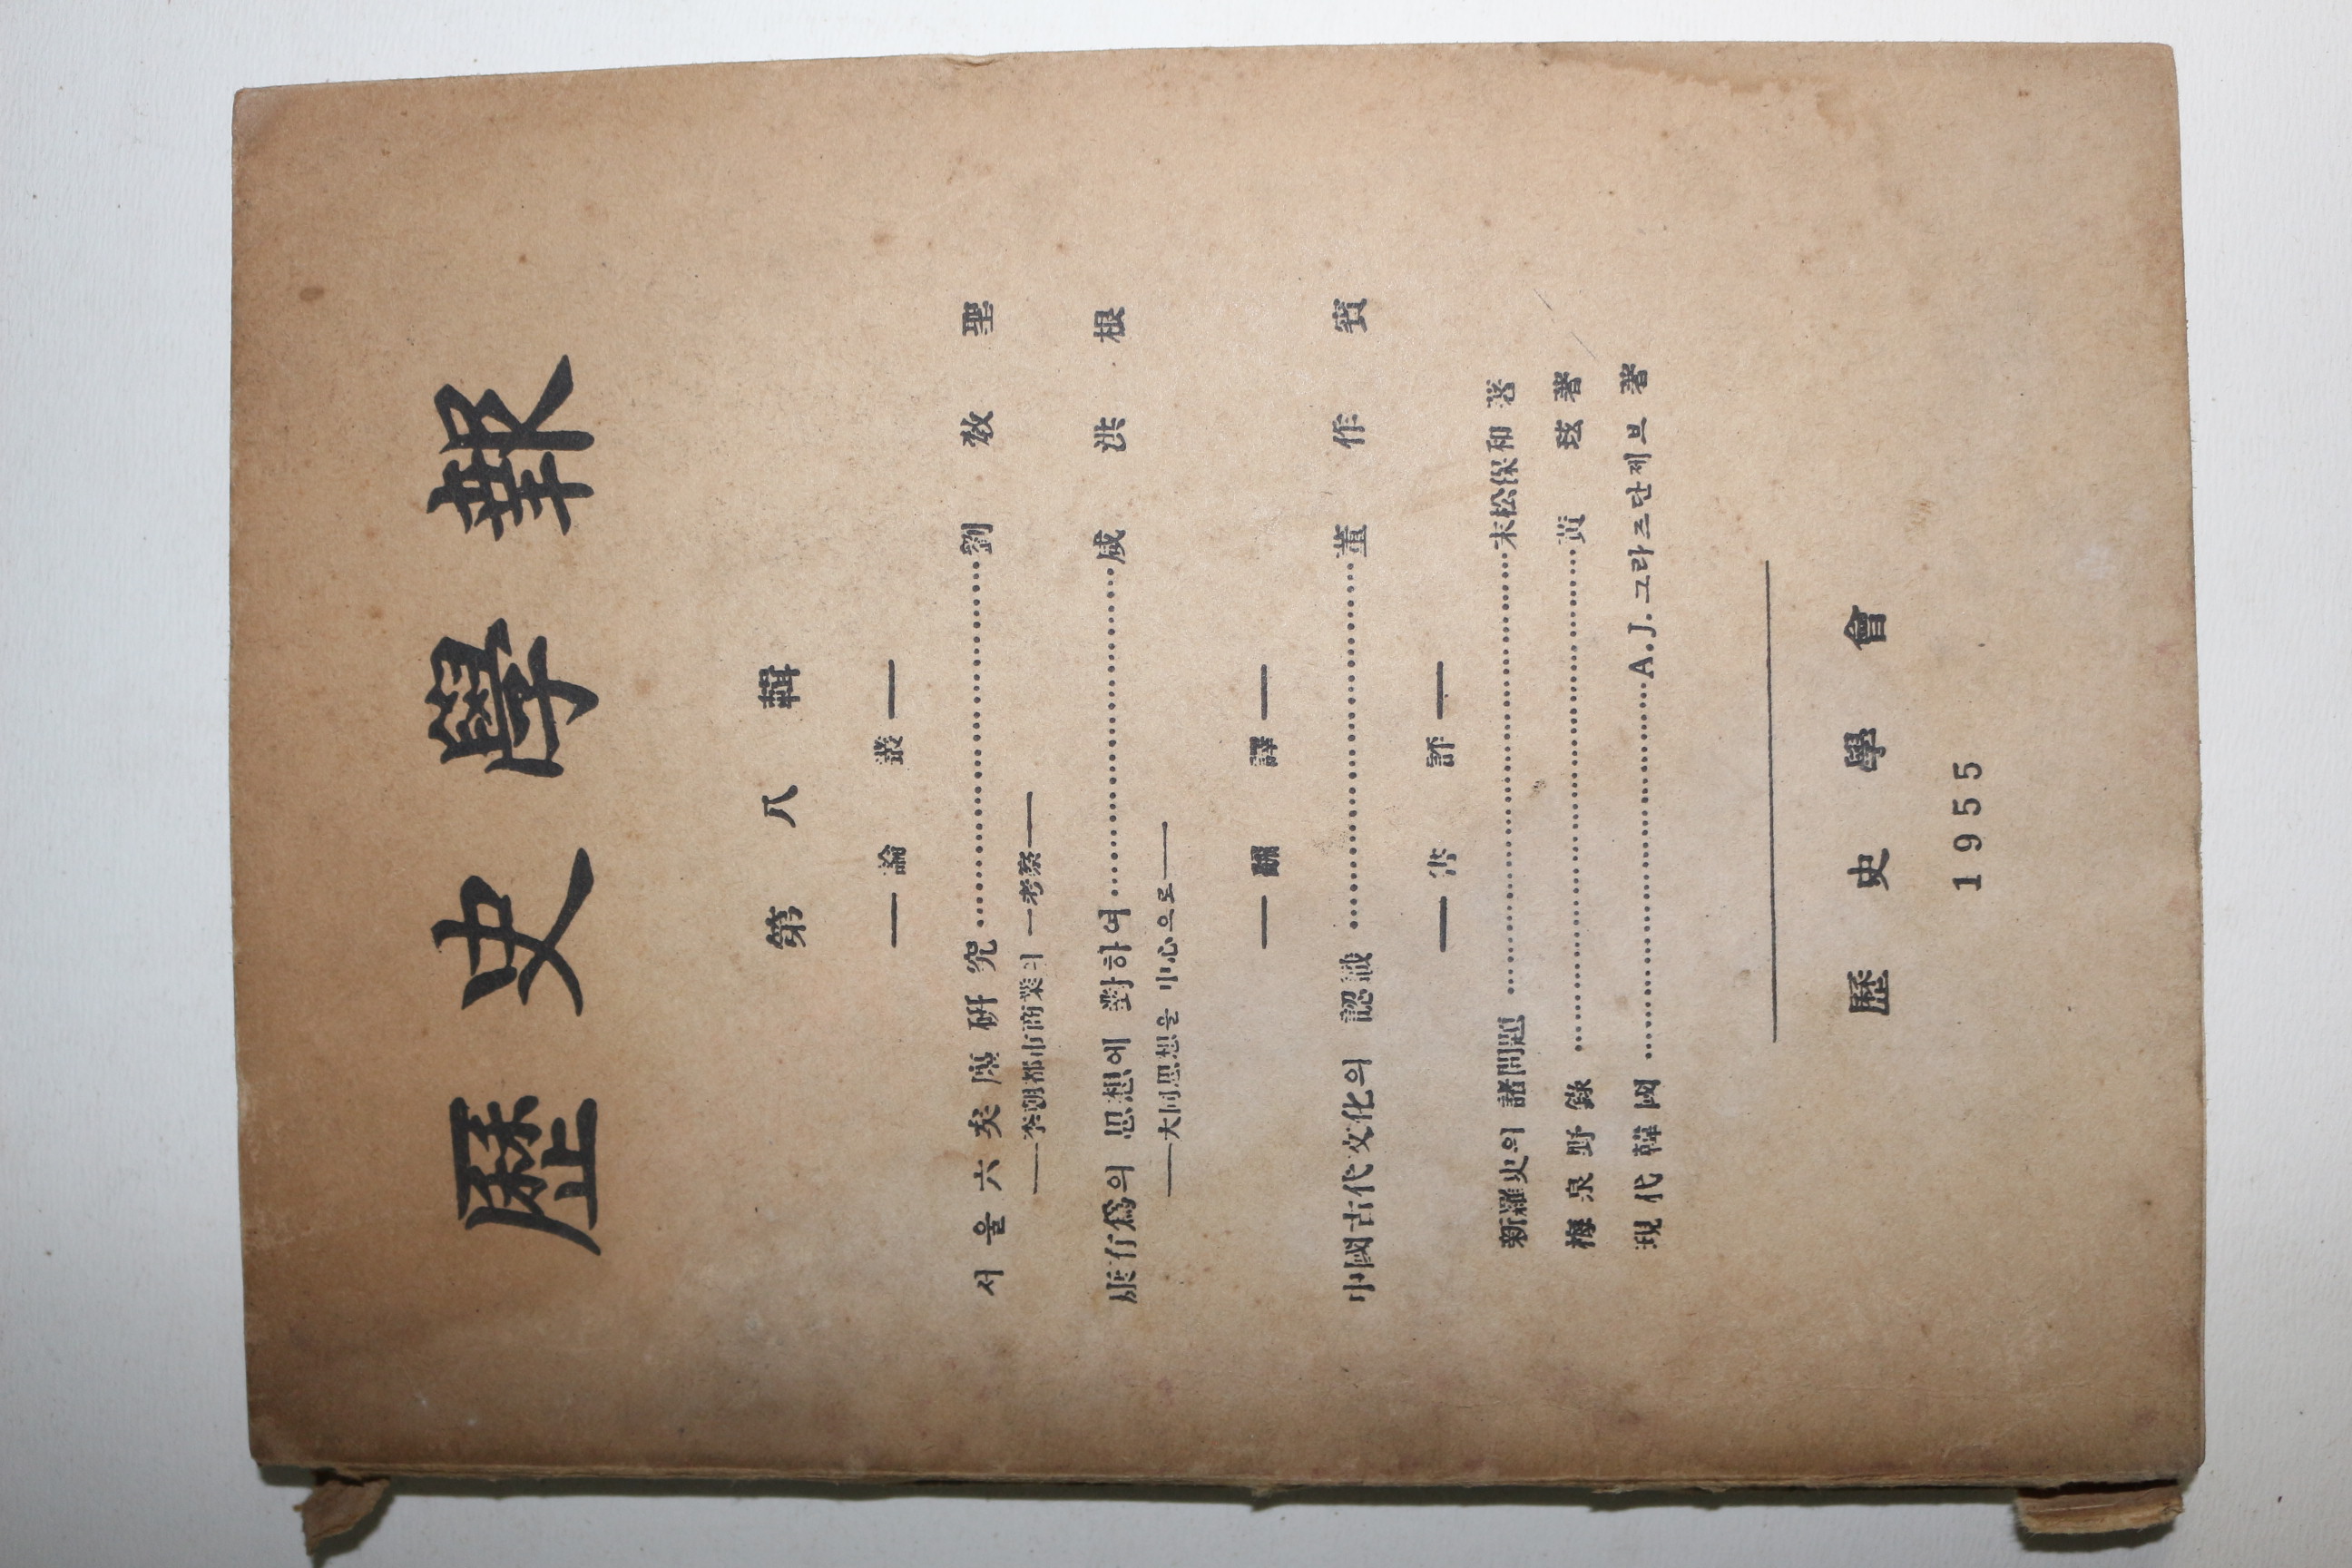 歷史學報
第八輯
— 論叢 —
서울六矣廛硏究……………………………劉敎聖
——李朝都市商業의 一考察——
康有爲의 思想에 對하여…………………………咸洪根
——大同思想을 中心으로——
— 飜譯 —
中國古代文化의 認識……………………………董作賓
— 書評 —
新羅史의 諸問題……………………………………末松保和 著
梅泉野錄…………………………………………黃玹 著
現代韓國………………………………A.J.그라즈단제브 著
歷史學會
1955